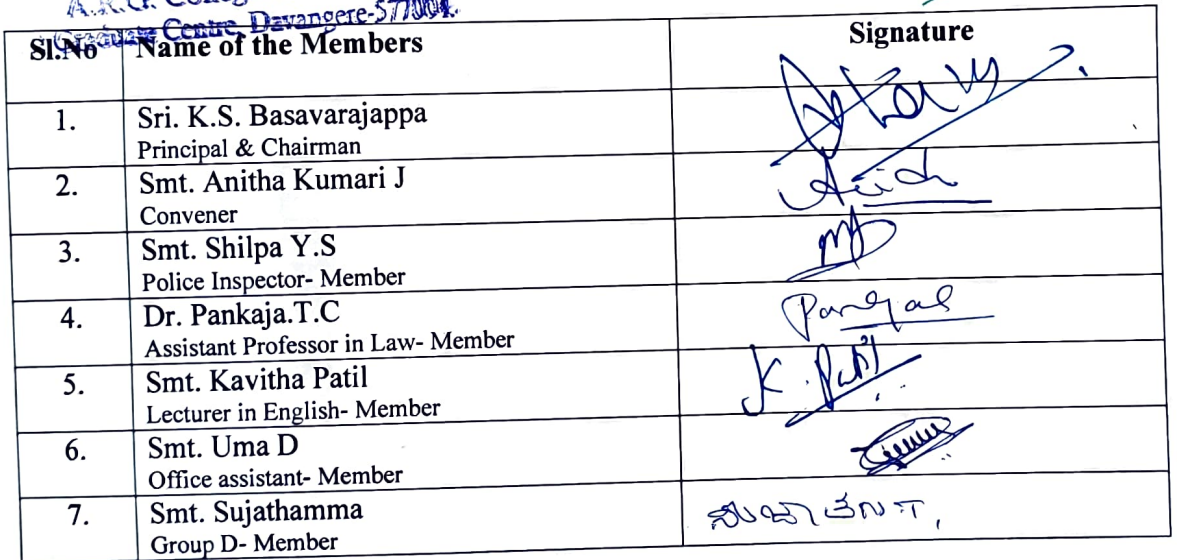 Graduate Centre, Davangere-577004.
Sl.No Name of the Members Signature
1. Sri. K.S. Basavarajappa
Principal & Chairman
2. Smt. Anitha Kumari J
Convener
3. Smt. Shilpa Y.S
Police Inspector- Member
4. Dr. Pankaja.T.C
Assistant Professor in Law- Member
5. Smt. Kavitha Patil K. Patil
Lecturer in English- Member
6. Smt. Uma D
Office assistant- Member
7. Smt. Sujathamma
Group D- Member